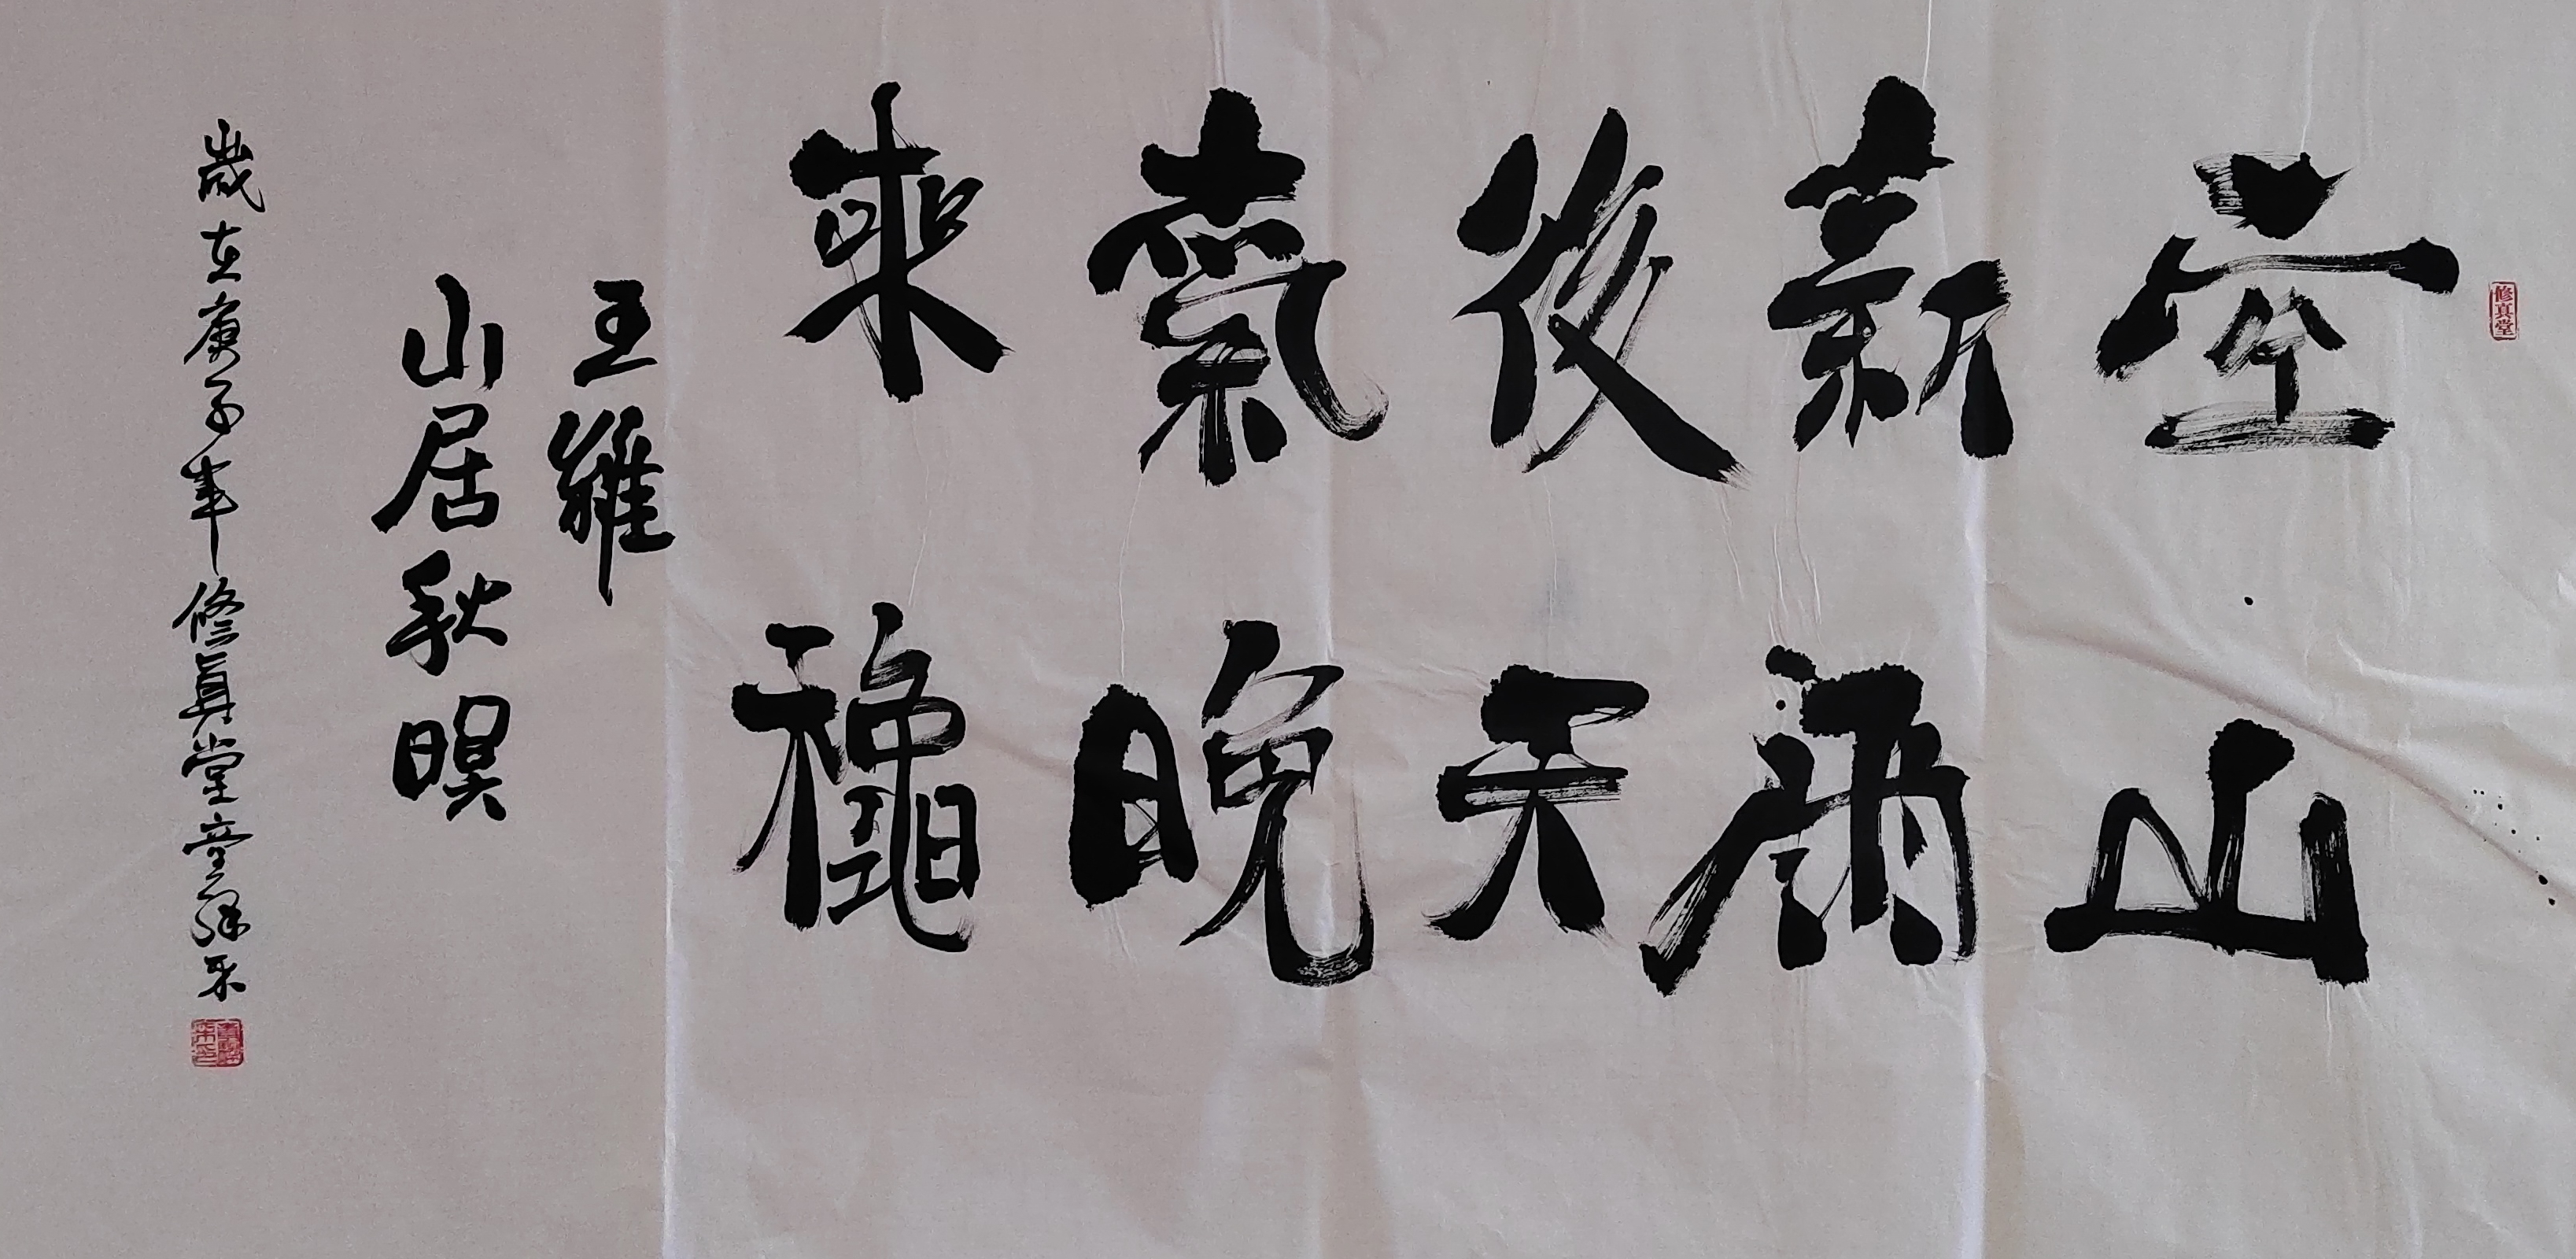 修真堂
空山
新雨
後天
氣晚
來穐
王維
山居秋暝
歲在庚子年修真堂童